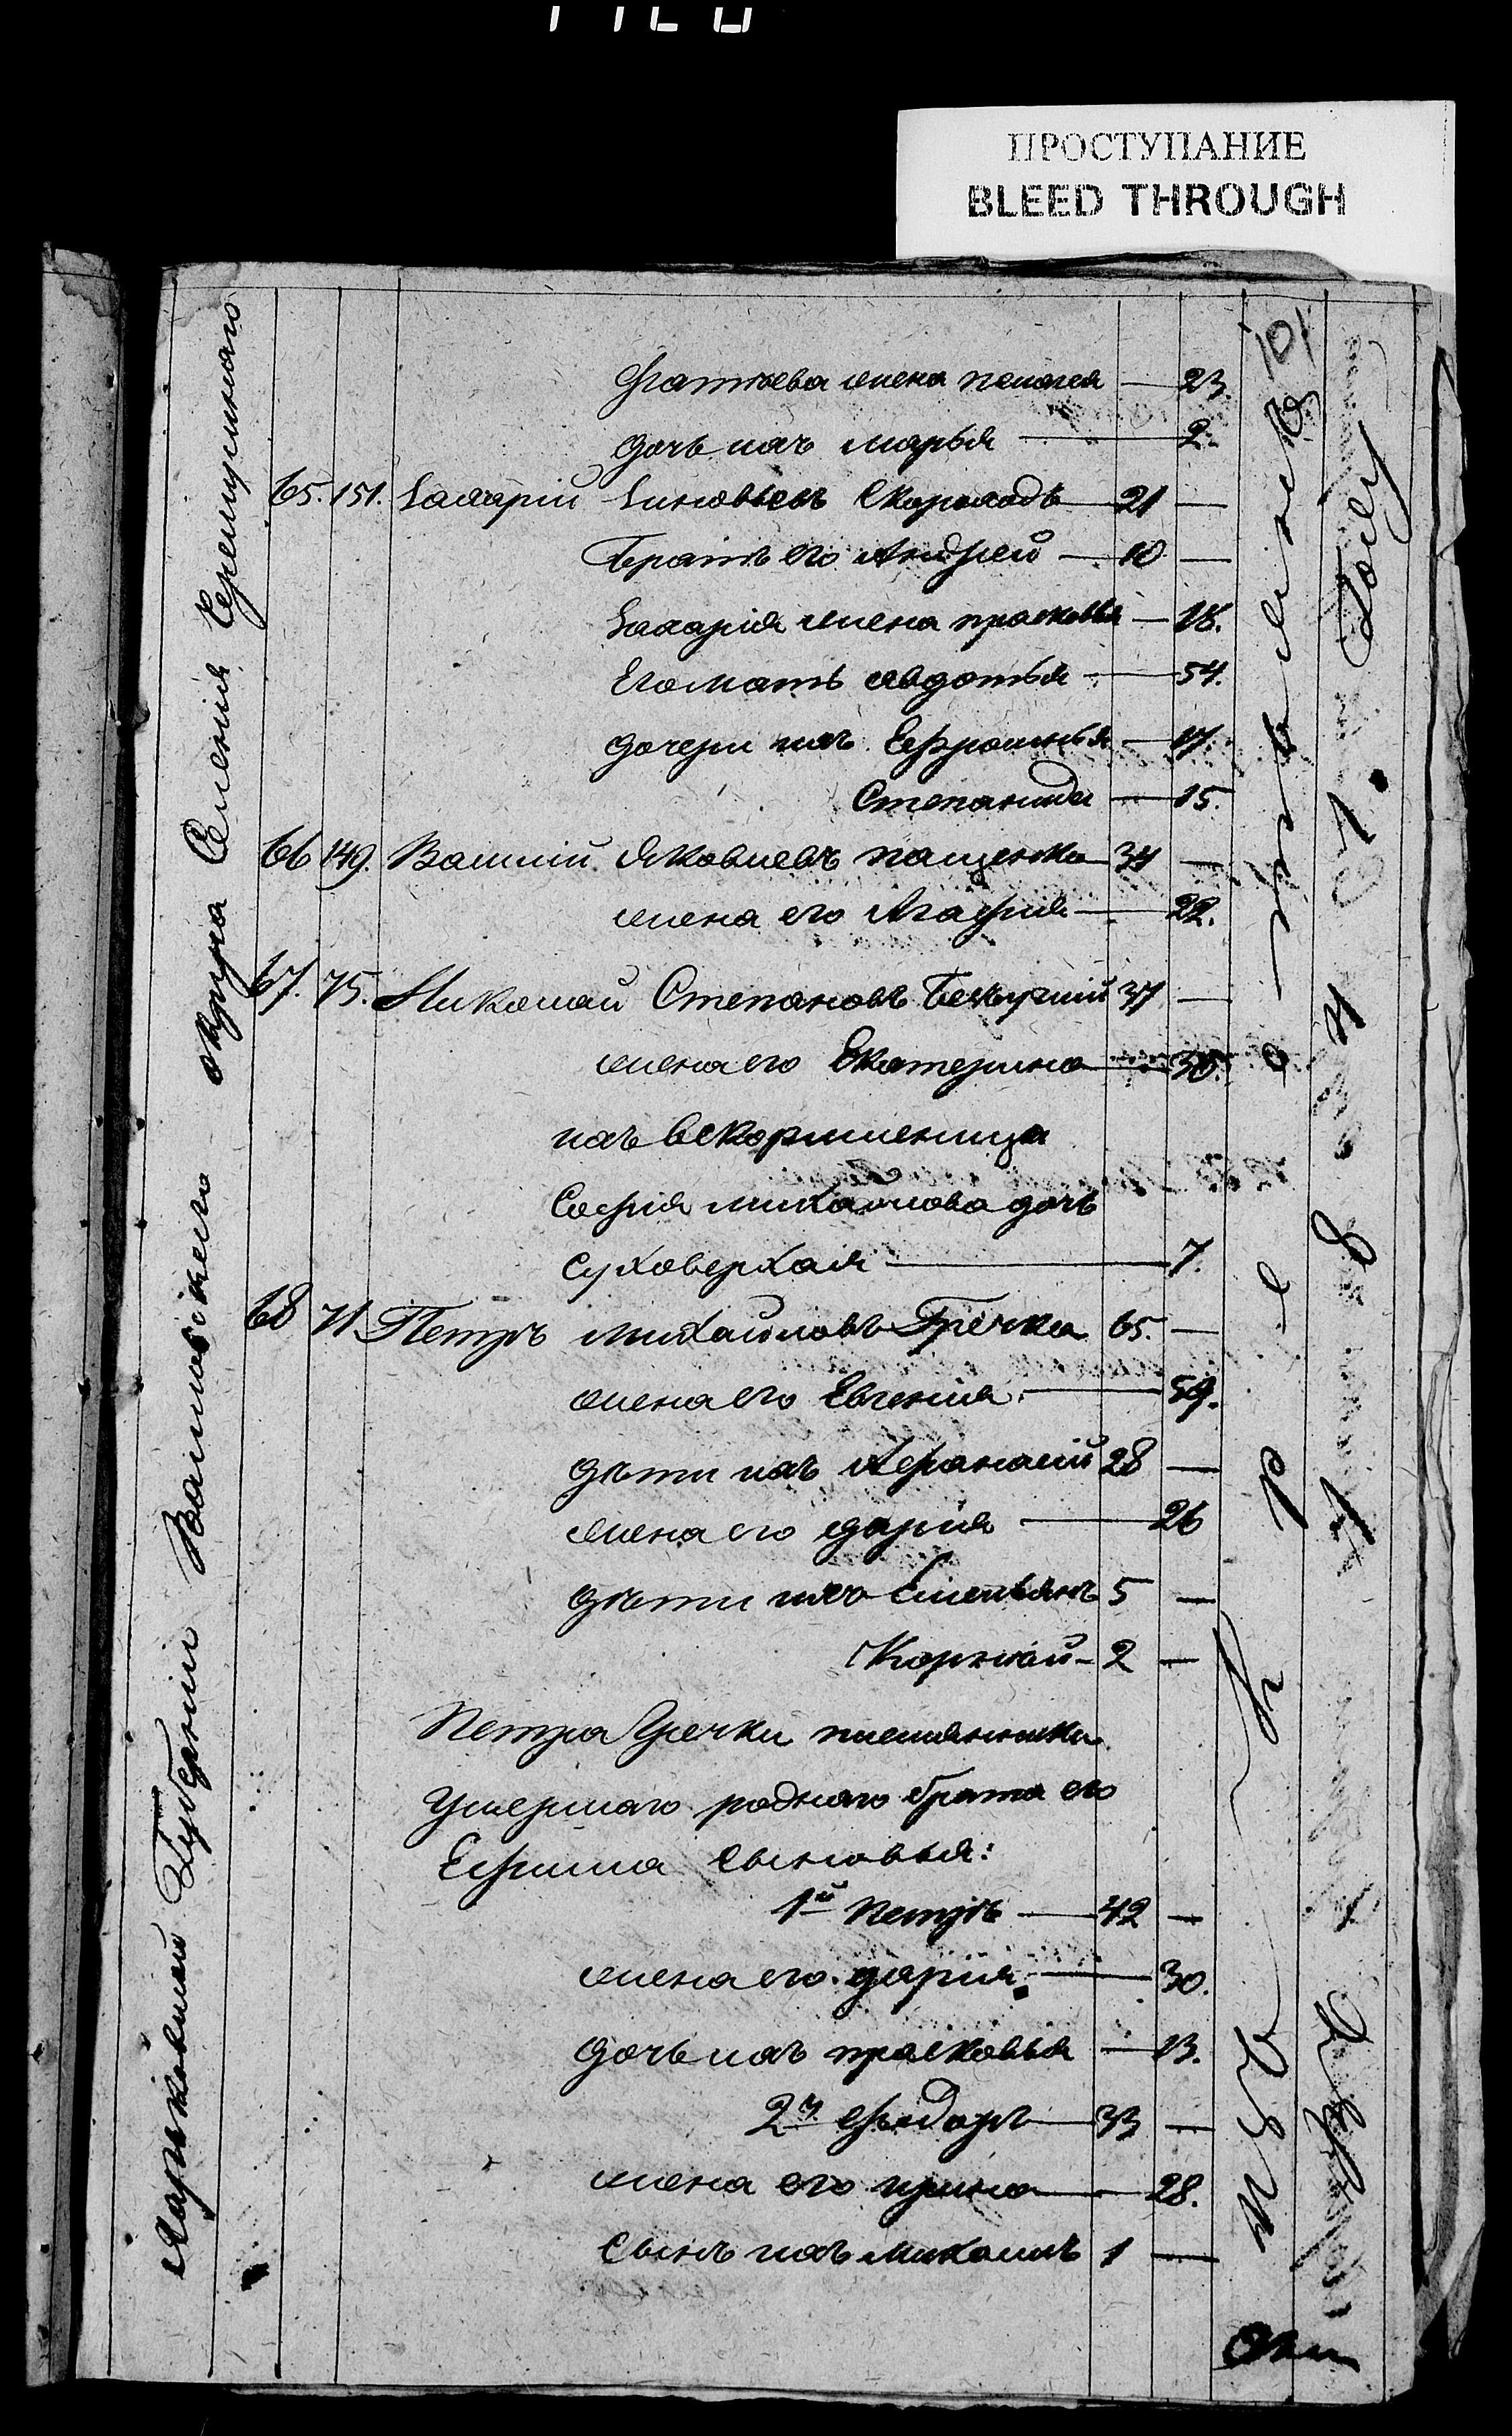 ПРОСТУПАНИЕ
BLEED THROUGH
101
Харьковской Губернии Валковского округа Селения Черемушнаго
Фатѣева жена пелагея — 23
дочь ихъ марья — 2.
65. 151. Захарій Зиновьевъ Скороходъ 21 —
Братъ его Андрей — 10 —
Захарія жена прасковья — 18.
Его мать авдотья — 54.
дочери ихъ Ефросинья — 17.
Степанида — 15.
66 149. Василій Яковлевъ пащенко 34 —
жена его Агафия — 22.
67. 75. Николай Степановъ 37 —
жена его Екатерина — 30.
ихъ вскормленица
София михайлова дочь
Суховерхая — 7.
68 71 Петръ михайловъ Гречка 65. —
жена его Евгения — 59.
дѣти ихъ Афанасий 28 —
жена его дария — 26
дѣти ихъ Емельянъ 5 —
Корнѣй — 2 —
Петра Гречки племянники
умершаго роднаго брата его
Ефима сыновья:
1й петръ — 42 —
жена его дария — 30.
дочь ихъ прасковья — 13.
2й Федоръ — 33 —
жена его ирина — 28.
Сынъ ихъ михаилъ 1 —